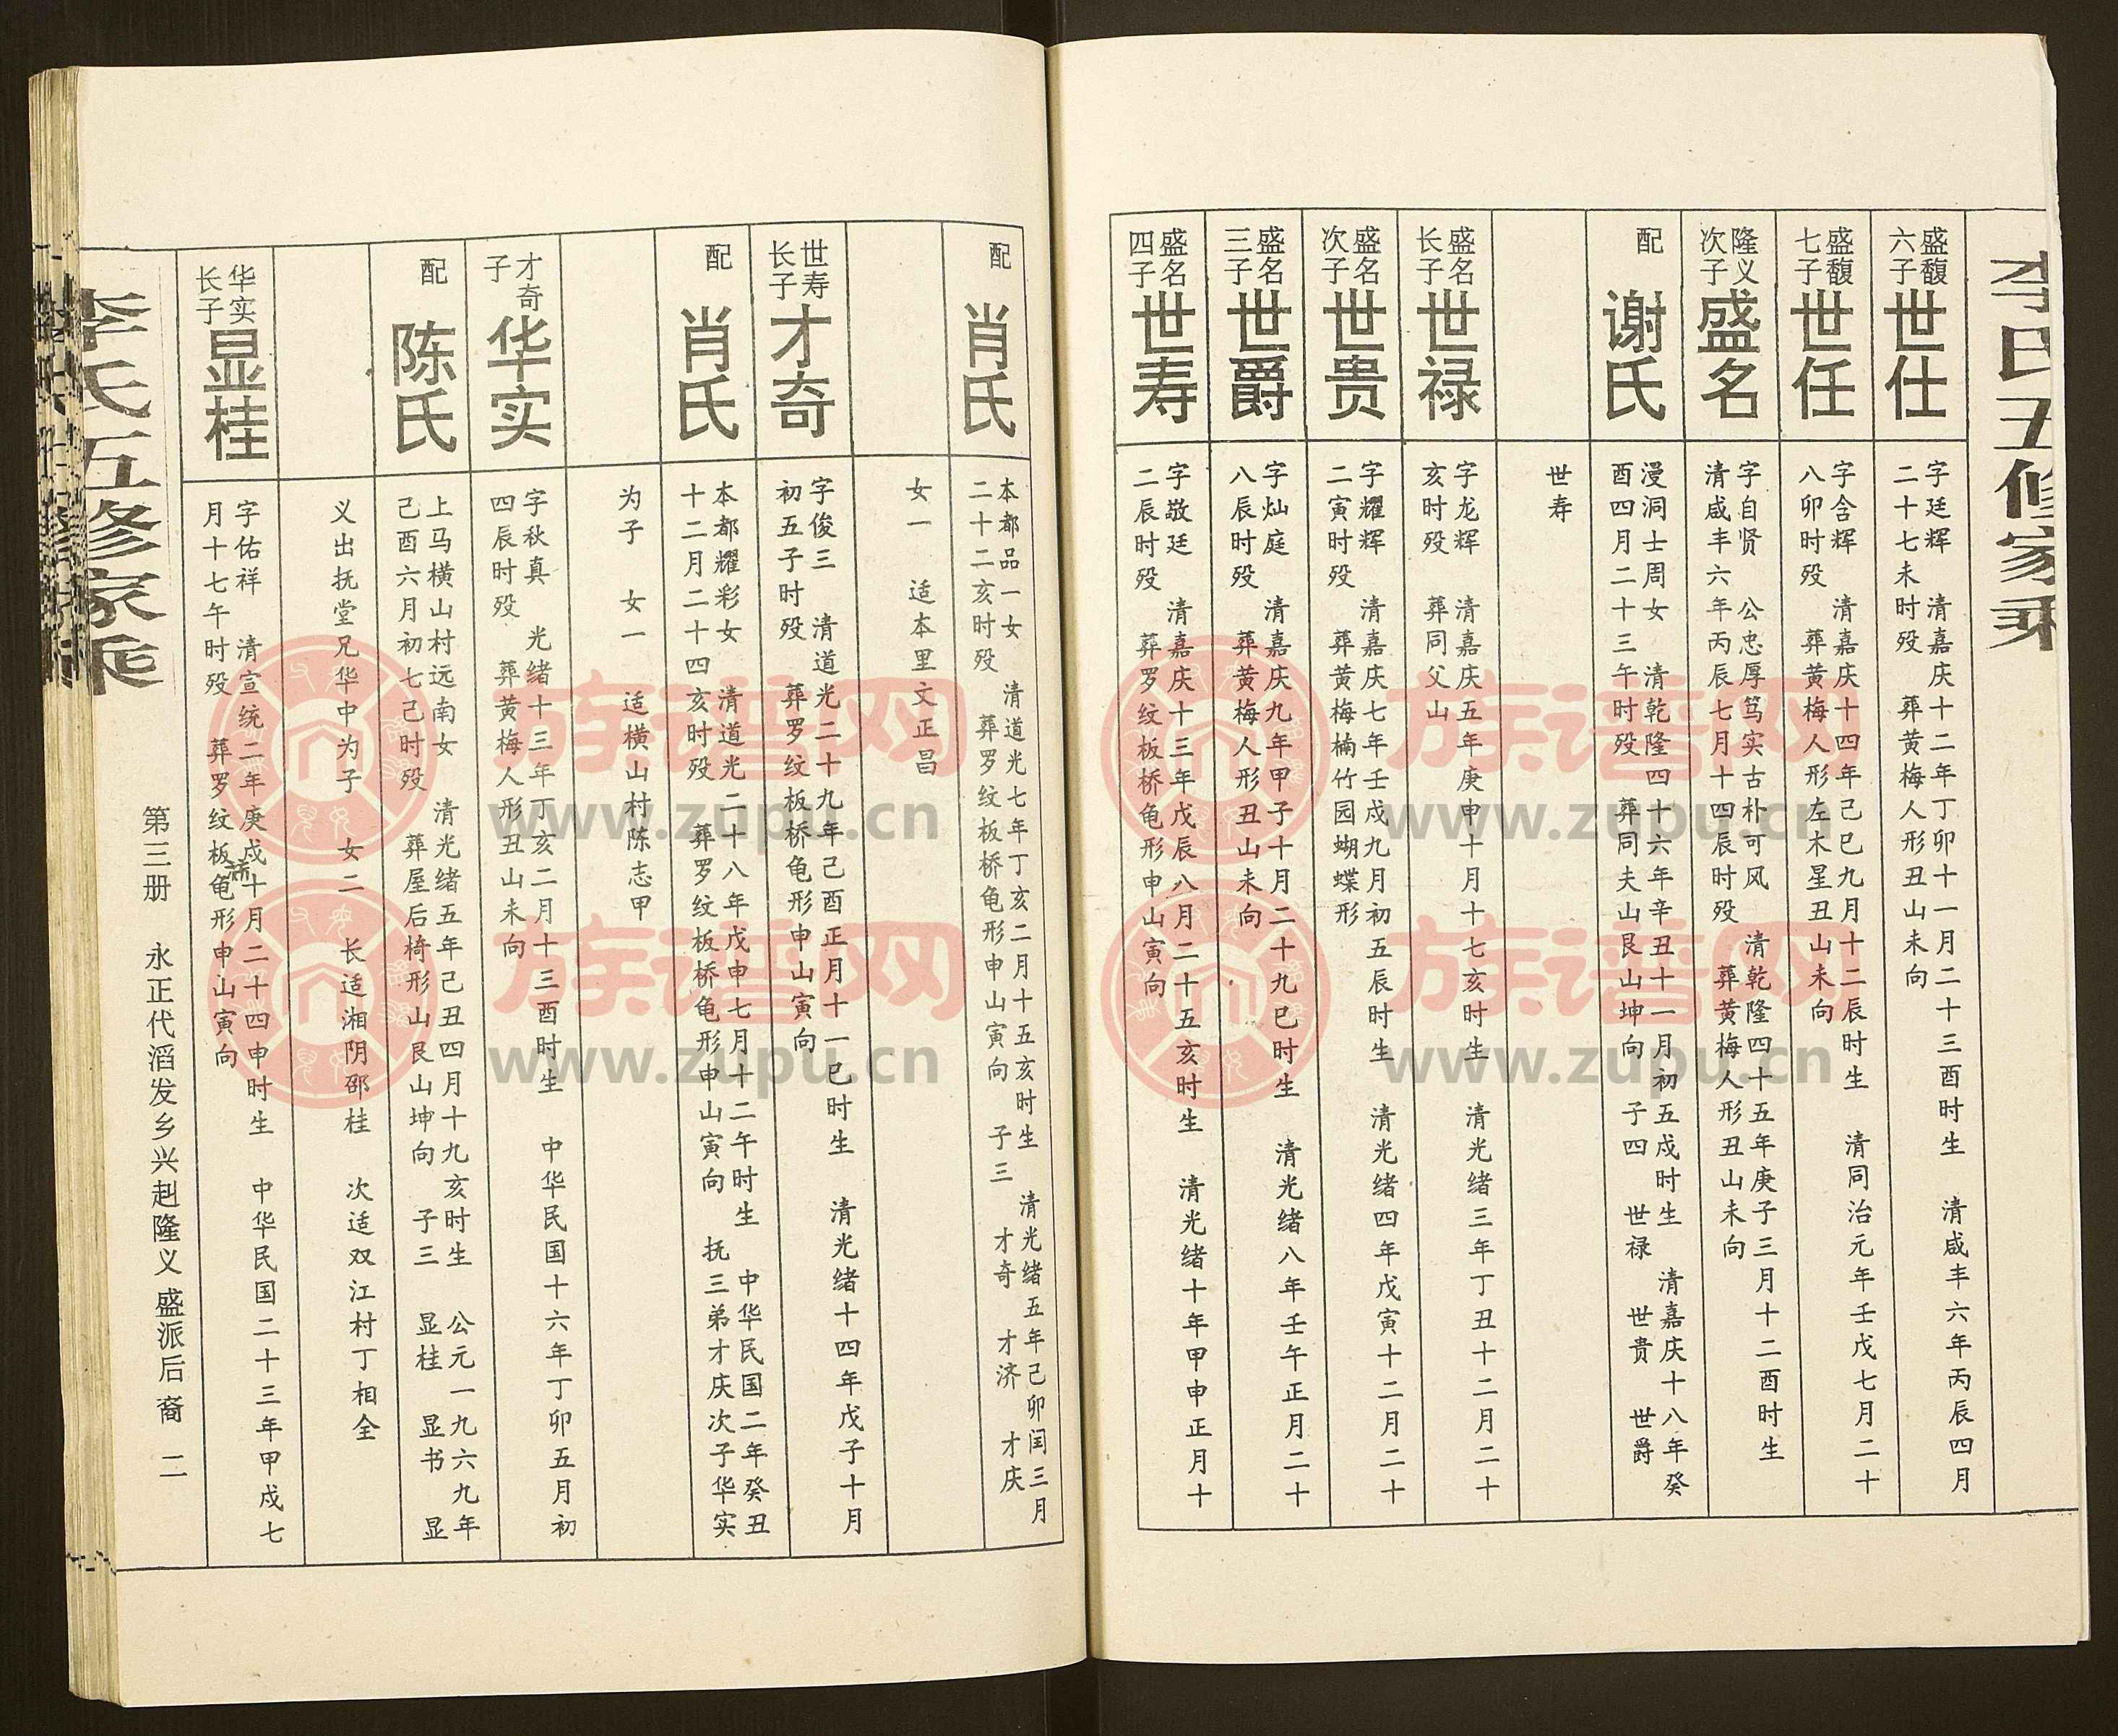 李氏五修家乘
盛馥六子
世仕
字廷辉　清嘉庆十二年丁卯十一月二十三酉时生　清咸丰六年丙辰四月
二十七未时殁　葬黄梅人形丑山未向
盛馥七子
世任
字含辉　清嘉庆十四年己巳九月十二辰时生　清同治元年壬戌七月二十
八卯时殁　葬黄梅人形左木星丑山未向
隆义次子
盛名
字自贤　公忠厚笃实古朴可风　清乾隆四十五年庚子三月十二酉时生
清咸丰六年丙辰七月十四辰时殁　葬黄梅人形丑山未向
配
谢氏
漫洞士周女　清乾隆四十六年辛丑十一月初五戌时生　清嘉庆十八年癸
酉四月二十三午时殁　葬同夫山艮山坤向　子四　世禄　世贵　世爵
世寿
盛名长子
世禄
字龙辉　清嘉庆五年庚申十月十七亥时生　清光绪三年丁丑十二月二十
亥时殁　葬同父山
盛名次子
世贵
字耀辉　清嘉庆七年壬戌九月初五辰时生　清光绪四年戊寅十二月二十
二寅时殁　葬黄梅楠竹园蝴蝶形
盛名三子
世爵
字灿庭　清嘉庆九年甲子十月二十九巳时生　清光绪八年壬午正月二十
八辰时殁　葬黄梅人形丑山未向
盛名四子
世寿
字敬廷　清嘉庆十三年戊辰八月二十五亥时生　清光绪十年甲申正月十
二辰时殁　葬罗纹板桥龟形申山寅向
配
肖氏
本都品一女　清道光七年丁亥二月十五亥时生　清光绪五年己卯闰三月
二十二亥时殁　葬罗纹板桥龟形申山寅向　子三　才奇　才济　才庆
女一　适本里文正昌
世寿长子
才奇
字俊三　清道光二十九年己酉正月十一巳时生　清光绪十四年戊子十月
初五子时殁　葬罗纹板桥龟形申山寅向
配
肖氏
本都耀彩女　清道光二十八年戊申七月十二午时生　中华民国二年癸丑
十二月二十四亥时殁　葬罗纹板桥龟形申山寅向　抚三弟才庆次子华实
为子　女一　适横山村陈志甲
才奇子
华实
字秋真　光绪十三年丁亥二月十三酉时生　中华民国十六年丁卯五月初
四辰时殁　葬黄梅人形丑山未向
配
陈氏
上马横山村远南女　清光绪五年己丑四月十九亥时生　公元一九六九年
己酉六月初七己时殁　葬屋后椅形山艮山坤向　子三　显桂　显书　显
义出抚堂兄华中为子　女二　长适湘阴邵桂　次适双江村丁相全
华实长子
显桂
字佑祥　清宣统二年庚戌十月二十四申时生　中华民国二十三年甲戌七
月十七午时殁　葬罗纹板龟形申山寅向
李氏五修家乘
第三册　永正代滔发乡兴赳隆义盛派后裔　二
族谱网
www.zupu.cn
族谱网
www.zupu.cn
族谱网
www.zupu.cn
族谱网
www.zupu.cn